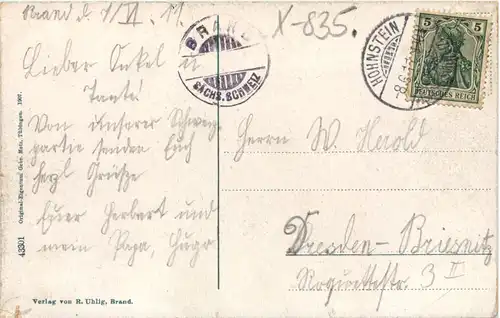 Brand d. 8/VI. 11.
X-835.
Lieber Onkel u
Tante!
Von unserer
partie senden Euch
herzl Grüße
Euer Herbert und
mein Papa, Hugo
BRAND
SÄCHS. SCHWEIZ
HOHNSTEIN
5 5
DEUTSCHES REICH
Herrn W. Herold
Dresden-Briesnitz
Roquettestr. 3 II
43301 Original-Eigentum Gebr. Metz, Tübingen. 1907.
Verlag von R. Uhlig, Brand.